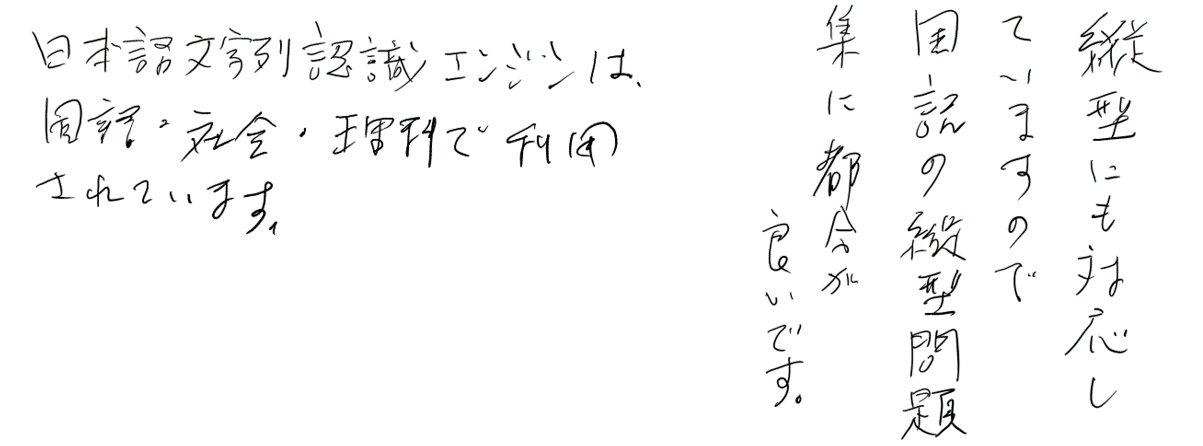 日本語文字列認識エンジンは、
国語・社会・理科で利用
されています。
縦型にも対応し
ていますので
国語の縦型問題
集に都合が
良いです。